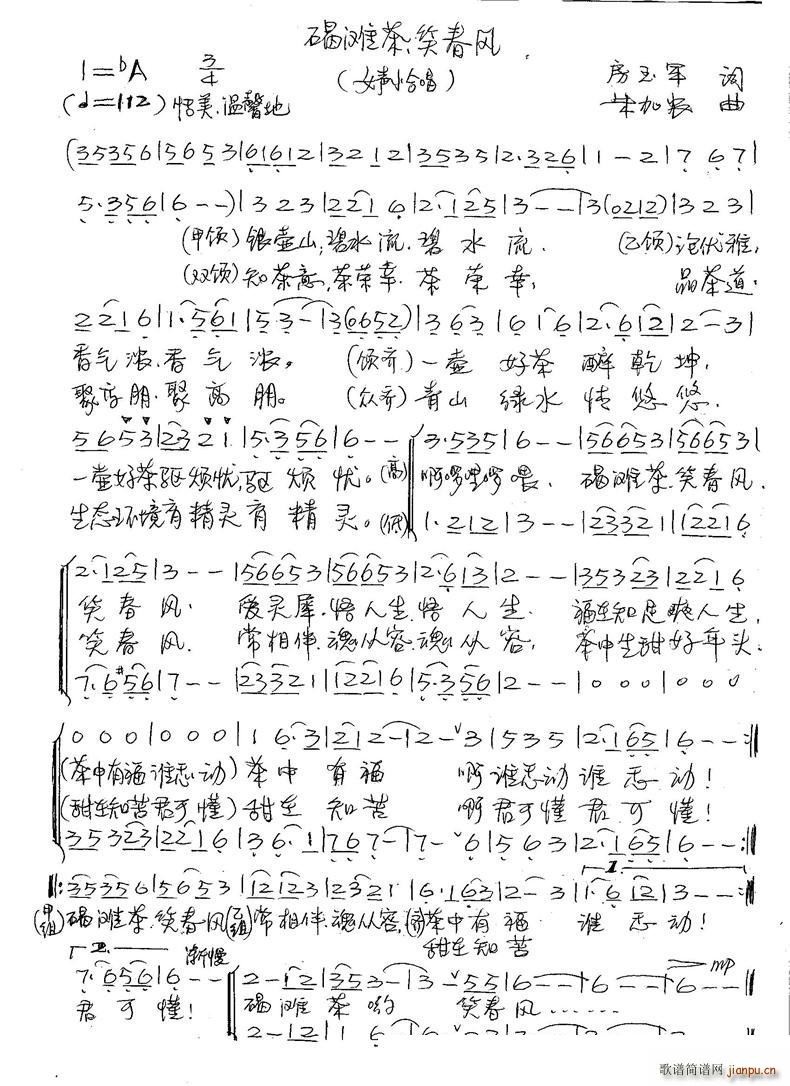 碣滩茶,笑春风
1=bA 3/4 (女声小合唱) 房玉军 词
(♩=112) 恬美.温馨地 加农 曲
(35356|56053|61612|3212|35353|2·326|1-2|767|
5·356|6--)|323|2216|2·125|3--|3(0212)|323|
(甲领)银壶山,碧水流.碧水流. (乙领)泡优雅,
(双领)知茶意,茶荣幸.茶荣幸, 品茶道.
2216|1·561|5·3-|3(0652)|363|616|2·612|2-3|
香气浓.香气浓。 (领齐)一壶好茶醉乾坤,
聚高朋.聚高朋。 (众齐)青山绿水情悠悠.
5653|2321|5·356|6--|3·535|6--|56653|56653|
一壶好茶驱烦忧,驱烦忧。(高)啊啰哩啰喂、碣滩茶.笑春风.
生态环境育精灵育精灵。(低)1·212|3--|23321|12216
2·125|3--|56653|56653|2·613|2--|35323|2216
笑春风. 爱灵犀.悟人生.悟人生. 福在知足爽人生,
笑春风. 常相伴.魂从容.魂从容, 茶中生甜好年头.
7·6#56|7--|23321|12216|5·356|2--|000|000
000|000|16·3|212-|2-3|535|2·165|6--:||
(茶中有福谁志动)茶中有福 啊谁志动谁志动!
(甜在知苦君可懂)甜在知苦 啊君可懂君可懂!
35323|2216|36·1|767-|7-6|563|2·165|6--:||
1.
||:35356|56053|12123|2321|6·163|2-3|1·612|3--:||
(甲组)碣滩茶.笑春风(乙组)常相伴.魂从容,(齐)茶中有福 谁志动!
甜在知苦
2. 渐慢 mp
7·656|6--|2-12|353-|3-|556-|6--|6--||
君可懂! 碣滩茶哟 笑春风……
歌谱简谱网
jianpu.cn